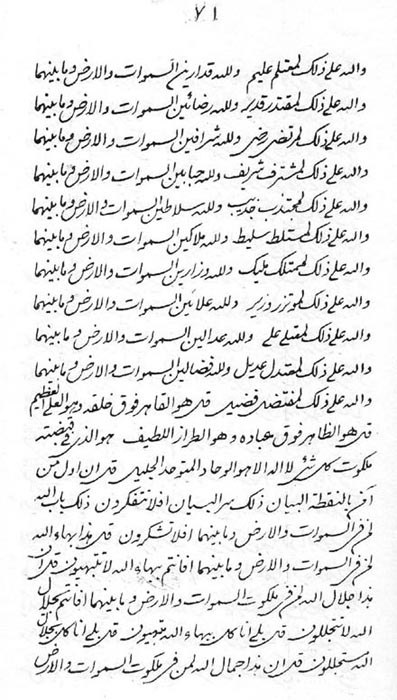 ۷۱
والله علی ذلک لمقتلم علیم ولله قدارین السموات والارض وما بینهما
والله علی ذلک لمقتدر قدیر ولله رضائین السموات والارض وما بینهما
والله علی ذلک لمرتضی رضی ولله شرافین السموات والارض وما بینهما
والله علی ذلک لمشترف شریف ولله جبابین السموات والارض وما بینهما
والله علی ذلک لمجتذب جذیب ولله سلاطین السموات والارض وما بینهما
والله علی ذلک لمستلط سلیط ولله ملاکین السموات والارض وما بینهما
والله علی ذلک لممتلک ملیک ولله وزارین السموات والارض وما بینهما
والله علی ذلک لموتزر وزیر ولله علائین السموات والارض وما بینهما
والله علی ذلک لمعتلی علی ولله عدالین السموات والارض وما بینهما
والله علی ذلک لمعتدل عدیل ولله فضالین السموات والارض وما بینهما
والله علی ذلک لمفتضل فضیل قل هو القاهر فوق خلقه وهو العلی العظیم
قل هو الظاهر فوق عباده وهو الطراز اللطیف هو الذی فی قبضته
ملکوت کل شئ لا اله الا هو الوحاد المتوحد الجلیل قل ان اول من
آمن بالنقطة البیان ذلک سر البیان افلا تتفکرون ذلک باب الله
لمن فی السموات والارض وما بینهما افلا تشکرون قل هذا بهاء الله
لمن فی السموات والارض وما بینهما افانتم ببهاء الله لا تبتهیون قل ان
هذا جلال الله لمن فی ملکوت السموات والارض وما بینهما افانتم بجلال
الله لا تجتللون قل بلی انا کل ببهاء الله مبتهیون قل بلی انا کل بجلال
الله مستجللون قل ان هذا جمال الله لمن فی ملکوت السموات والارض